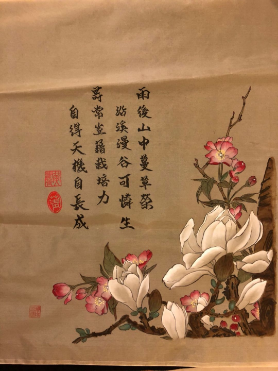 雨後山中蔓草榮
沿溪漫谷可憐生
尋常豈藉栽培力
自得天機自長成